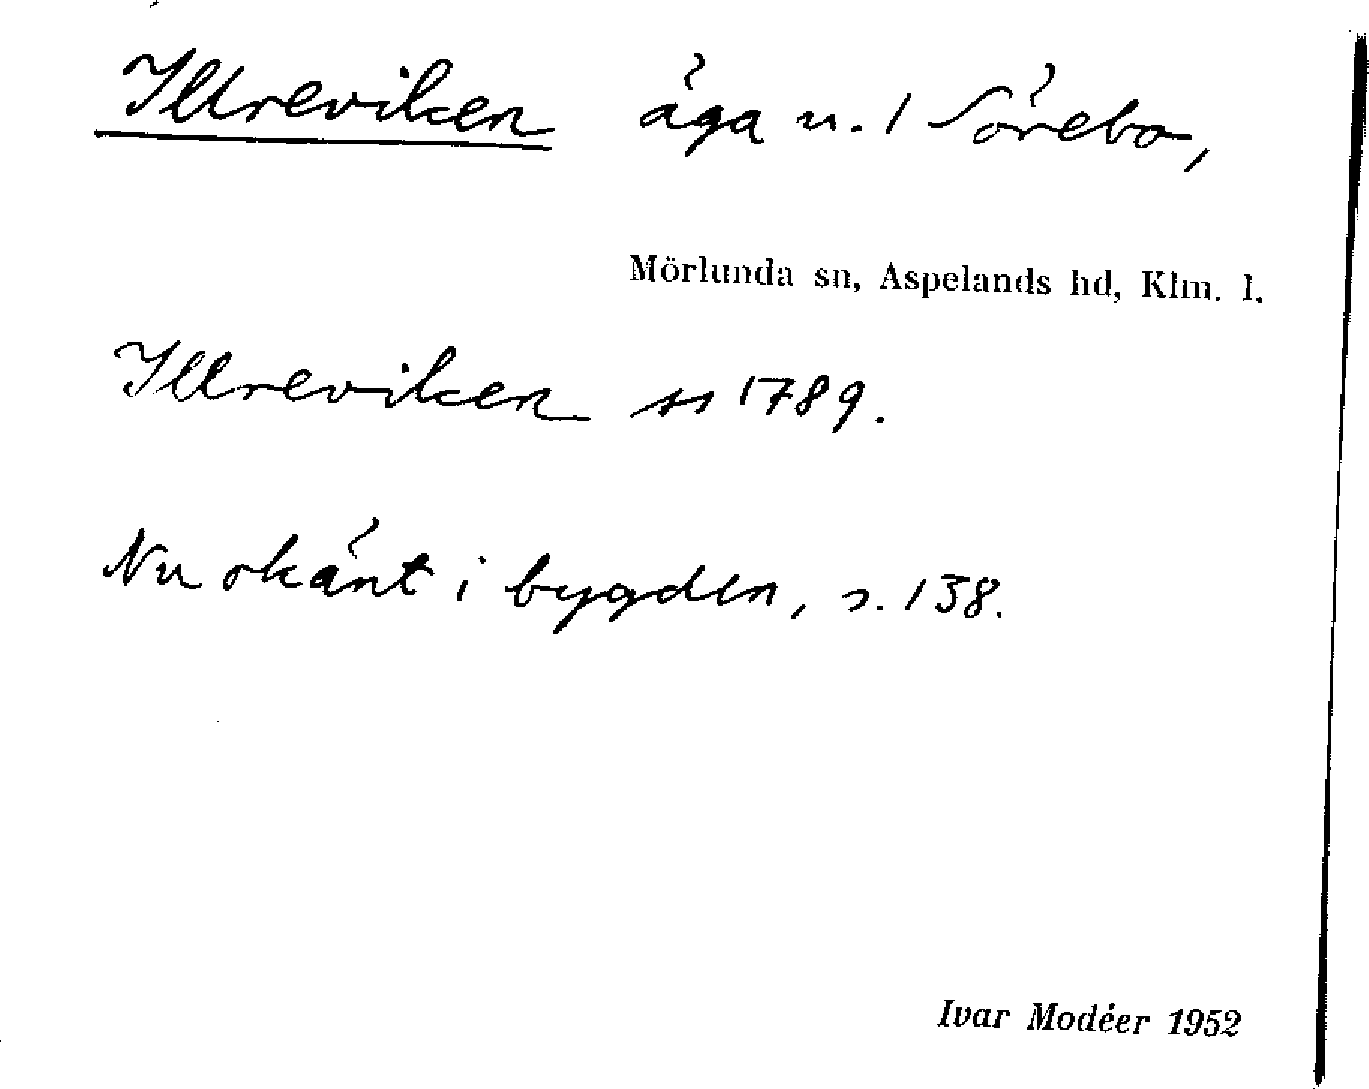 Illreviken äga u. 1 Sörebo,
Mörlunda sn, Aspelands hd, Klm. l.
Illreviken ss 1789.
Nu okänt i bygden, s. 138.
Ivar Modéer 1952